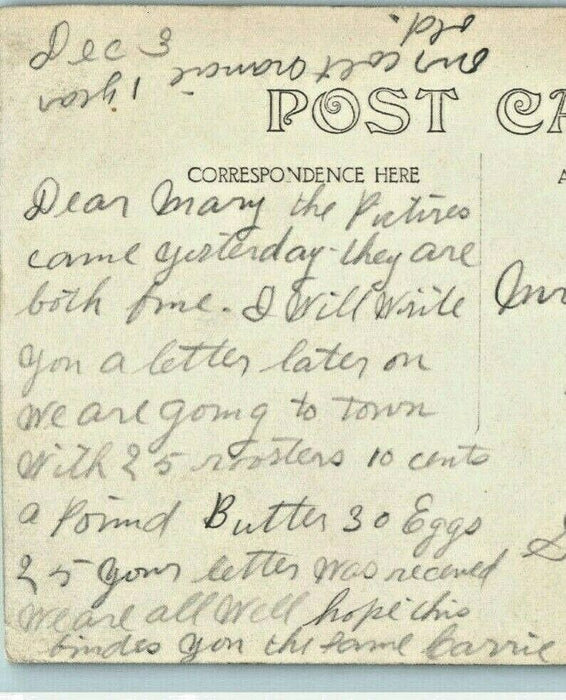 Dec 3
our colt oramie 1 year
old.
POST CA
CORRESPONDENCE HERE
A
Dear Mary the Pictires
came yesterday - they are
both fine. I Will Write
you a letter later on
we are going to town
With 25 roosters 10 cents
a Pound Butter 30 Eggs
25 your letter was received
we are all Well hope this
findes you the same Carrie